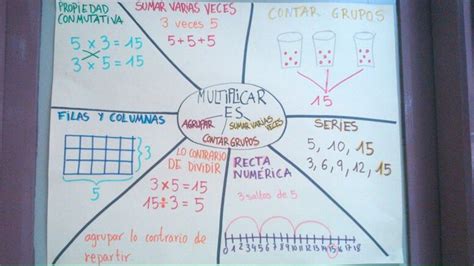 PROPIEDAD
CONMUTATIVA
5 x 3 = 15
3 x 5 = 15
SUMAR VARIAS VECES
3 veces 5
5+5+5
CONTAR GRUPOS
15
MULTIPLICAR
ES
AGRUPAR
SUMAR VARIAS
VECES
CONTAR GRUPOS
FILAS Y COLUMNAS
3
5
LO CONTRARIO
DE DIVIDIR
3x5=15
15÷3=5
agrupar lo contrario de
repartir.
RECTA
NUMÉRICA
3 saltos de 5
0 1 2 3 4 5 6 7 8 9 10 11 12 13 14 15 16 17 18
SERIES
5, 10, 15
3, 6, 9, 12, 15